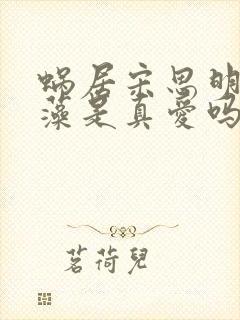 蜗居宋思明
藻是真爱吗
茗荷兒